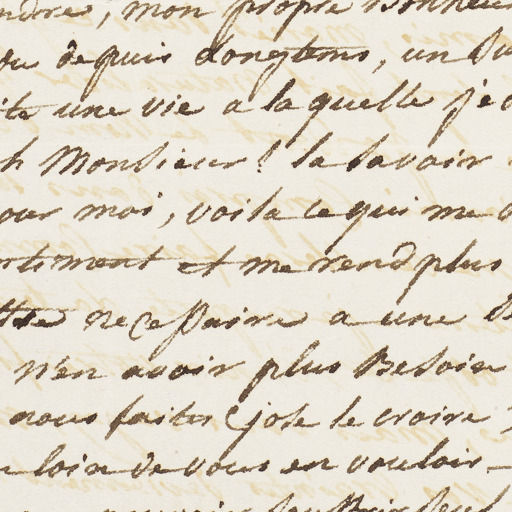 ndre, mon propre Bonheur
du depuis longtems, un
ite une vie a laquelle je
h Monsieur! la savoir
our moi, voila ce qui me
ntiment et me rend plus
ttre necessaire a une
n'en avoir plus Besoin
nous faites (jose le croire
loin de vous en vouloir